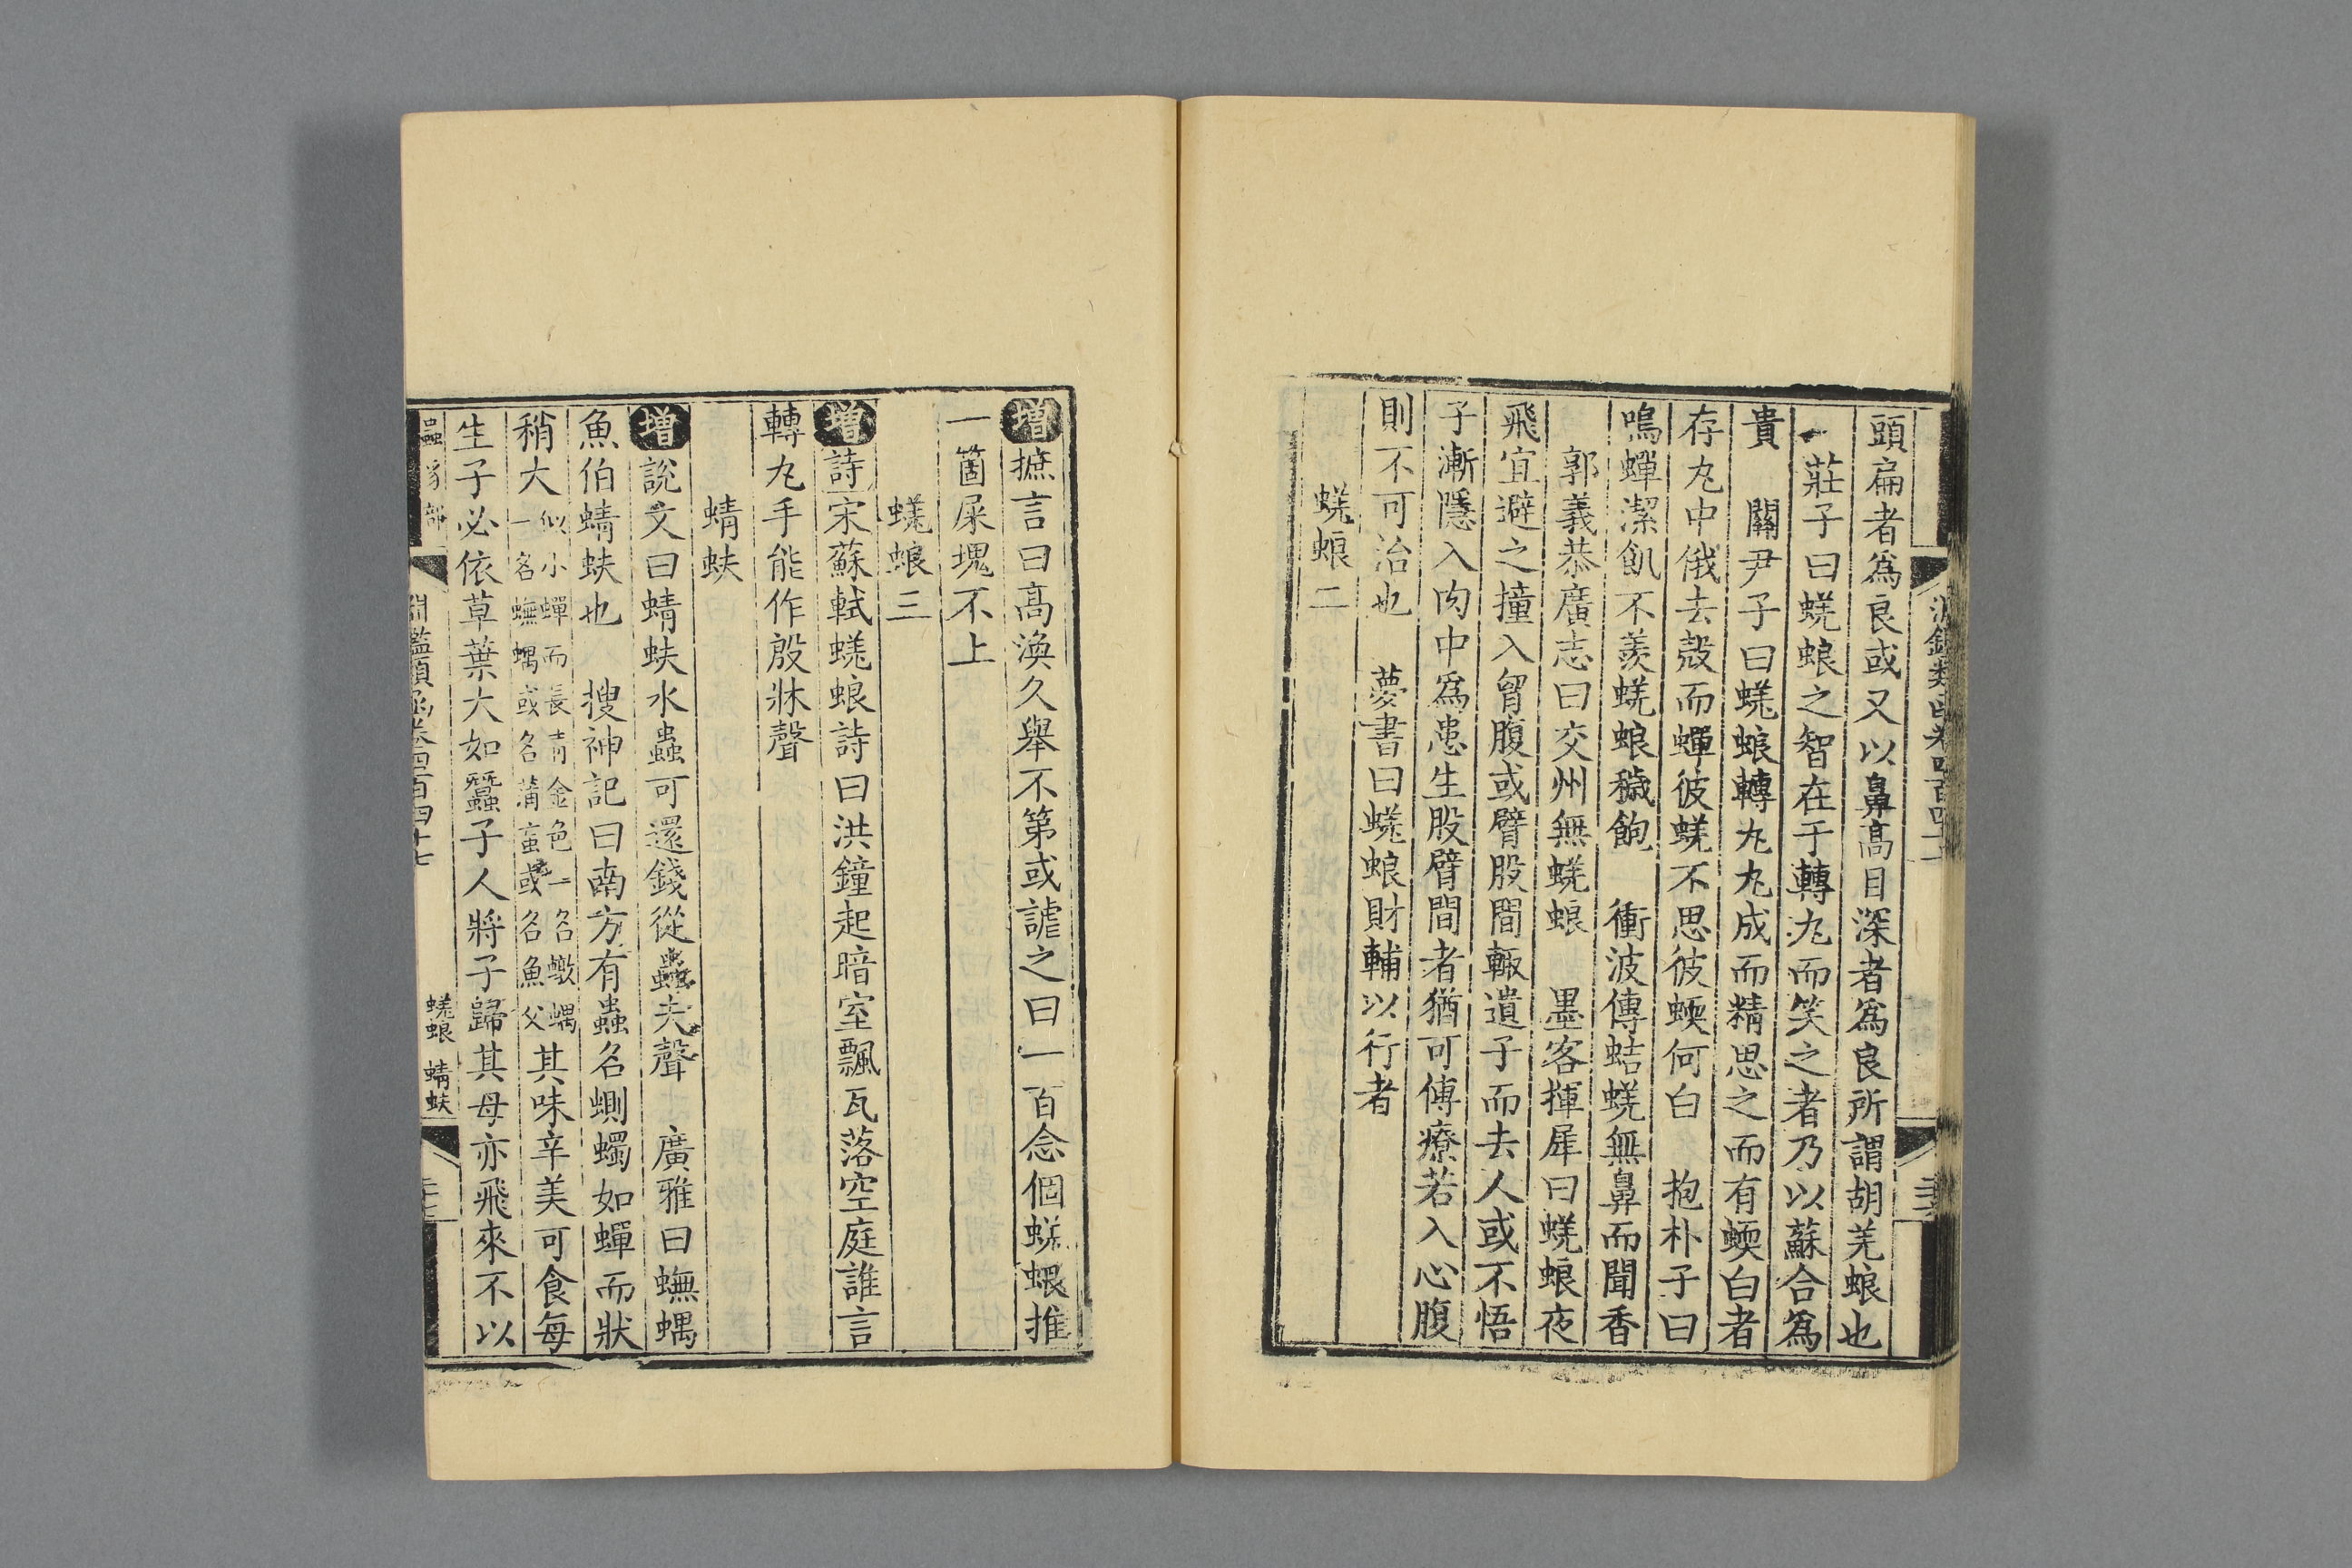 頭扁者爲良或又以鼻高目深者爲良所謂胡羌蜋也
莊子曰蜣蜋之智在于轉丸而笑之者乃以蘇合爲
貴　關尹子曰蜣蜋轉丸丸成而精思之而有蝡白者
存丸中俄去殼而蟬彼蜣不思彼蝡何白　抱朴子曰
鳴蟬潔飢不羨蜣蜋穢飽　衝波傳蛣蜣無鼻而聞香
郭義恭廣志曰交州無蜣蜋　墨客揮犀曰蜣蜋夜
飛宜避之撞入胷腹或臂股間輙遺子而去人或不悟
子漸隱入肉中爲患生股臂間者猶可傅療若入心腹
則不可治也　夢書曰蜣蜋財輔以行者
蜣蜋二
增摭言曰高渙久舉不第或謔之曰一百念個蜣蜋推
一箇屎塊不上
蜣蜋三
增詩宋蘇軾蜣蜋詩曰洪鐘起暗室飄瓦落空庭誰言
轉丸手能作殷牀聲
蜻蚨
增說文曰蜻蚨水蟲可還錢從蟲夫聲　廣雅曰蟱蝺
魚伯蜻蚨也　搜神記曰南方有蟲名蠮蠋如蟬而狀
稍大似小蟬而長青金色一名蠍蝺一名蟱蝺或名蒲䖟或名魚父其味辛美可食每
生子必依草葉大如蠶子人將子歸其母亦飛來不以
蟲豸部　淵鑑類函卷四百四十七　蜣蜋　蜻蚨